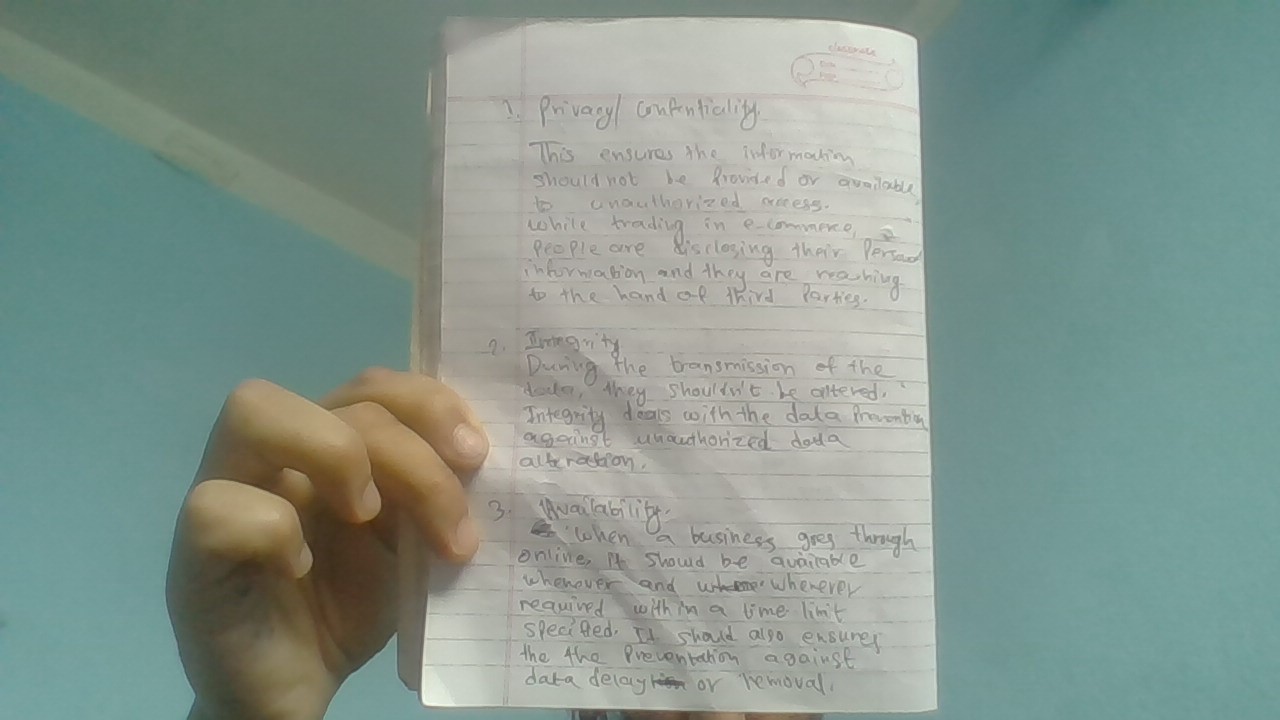 classmate
Date
Page
1. Privacy/ Confentiality.
This ensures the information
should not be Provided or available,
to unauthorized access.
while trading in e-commerce,
People are disclosing their Personal
information and they are reaching
to the hand of third Parties.
2. Integrity
During the transmission of the
data, they shouldn't be altered.
Integrity deals with the data Prevention
against unauthorized data
alteration.
3. Availability.
When a business goes through
online, it should be available
whenever and wherever
required within a time limit
specified. It should also ensures
the the Preventation against
data delay or removal.